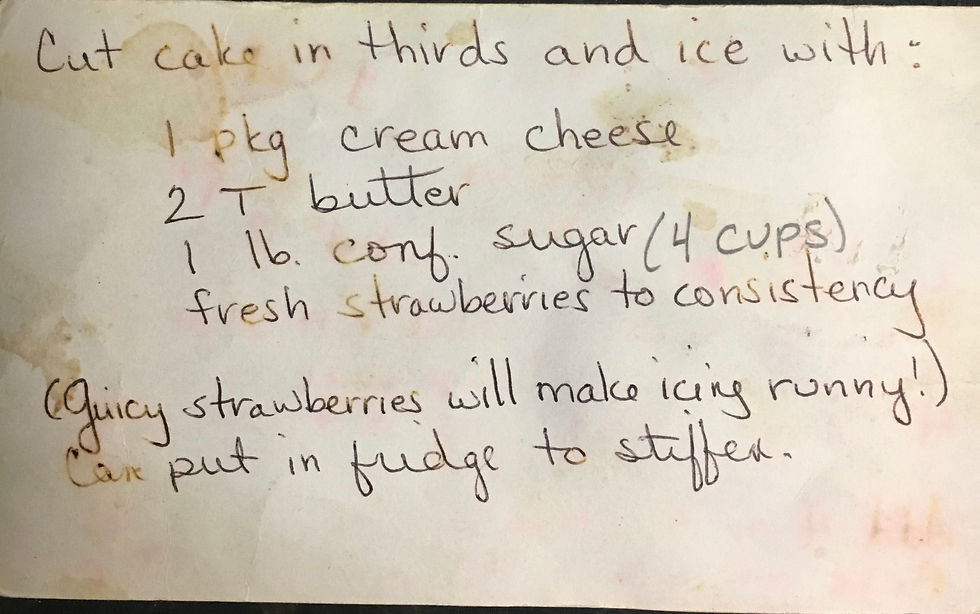 Cut cake in thirds and ice with:
1 pkg cream cheese
2 T butter
1 lb. conf. sugar (4 cups)
fresh strawberries to consistency
(Juicy strawberries will make icing runny!)
Can put in fudge to stiffen.